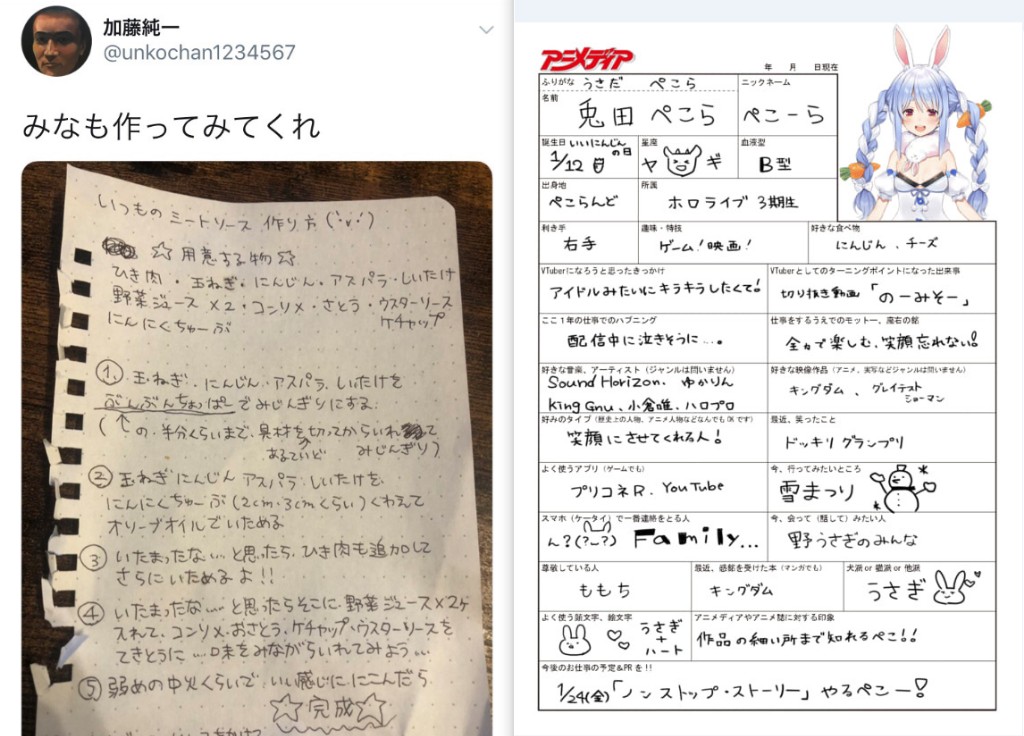 加藤純一
@unkochan1234567
みなも作ってみてくれ
いつものミートソース 作り方('ν')
☆用意する物☆
ひき肉・玉ねぎ・にんじん・アスパラ・しいたけ
野菜ジュース×2・コンソメ・さとう・ウスターソース
にんにくちゅーぶ ケチャップ
① 玉ねぎ・にんじん・アスパラ・しいたけを
ぶんぶんちょっぱーでみじんぎりにする
(↑の半分くらいまで、具材をあるていど切ってからいれてみじんぎり)
② 玉ねぎ にんじん アスパラ しいたけを
にんにくちゅーぶ(2cm・3cmくらい)くわえて
オリーブオイルでいためる
③ いたまったな…と思ったら、ひき肉も追加して
さらにいためるよ!!
④ いたまったな……と思ったらそこに野菜ジュース×2ヶ
入れて、コンソメ・おさとう・ケチャップ・ウスターソースを
てきとうに…味をみながらいれてみよう…
⑤ 弱めの中火くらいで、いい感じににこんだら
☆完成☆
アニメディア
年 月 日現在
ふりがな うさだ ぺこら
名前 兎田ぺこら
ニックネーム
ぺこーら
誕生日 いいにんじんの日
1/12日
星座
ヤギ
血液型
B型
出身地
ぺこらんど
所属
ホロライブ3期生
利き手
右手
趣味・特技
ゲーム!映画!
好きな食べ物
にんじん、チーズ
VTuberになろうと思ったきっかけ
アイドルみたいにキラキラしたくて!
VTuberとしてのターニングポイントになった出来事
切り抜き動画「のーみそー」
ここ1年の仕事でのハプニング
配信中に泣きそうに…。
仕事をするうえでのモットー、座右の銘
全力で楽しむ、笑顔忘れない!
好きな音楽、アーティスト(ジャンルは問いません)
Sound Horizon、ゆかりん
King Gnu、小倉唯、ハロプロ
好きな映像作品(アニメ、実写などジャンルは問いません)
キングダム、グレイテストショーマン
好みのタイプ(歴史上の人物、アニメ人物などなんでもOKです)
笑顔にさせてくれる人!
最近、笑ったこと
ドッキリグランプリ
よく使うアプリ(ゲームでも)
プリコネR、YouTube
今、行ってみたいところ
雪まつり
スマホ(ケータイ)で一番連絡をとる人
ん?(?_?) Family...
今、会って(話して)みたい人
野うさぎのみんな
尊敬している人
ももち
最近、感銘を受けた本(マンガでも)
キングダム
犬派or猫派or他派
うさぎ
よく使う顔文字、絵文字
うさぎ
+
ハート
アニメディアやアニメ誌に対する印象
作品の細い所まで知れるぺこ!!
今後のお仕事の予定&PRを!!
1/24(金)「ノンストップ・ストーリー」やるぺこー!